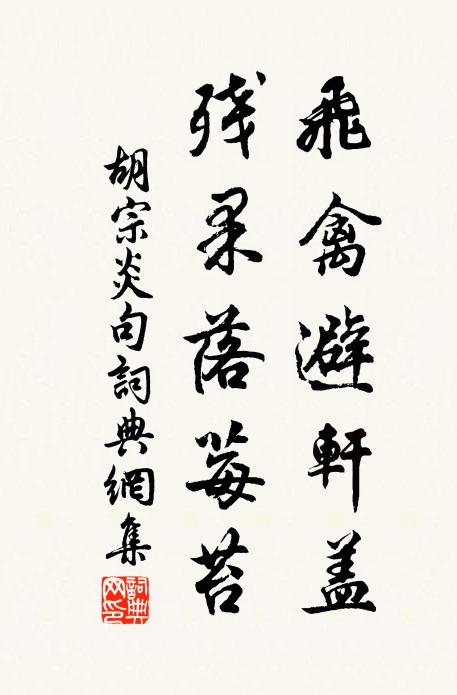 飛禽避軒盖
残果落莓苔
胡宗炎句詞典網集
詞典網印